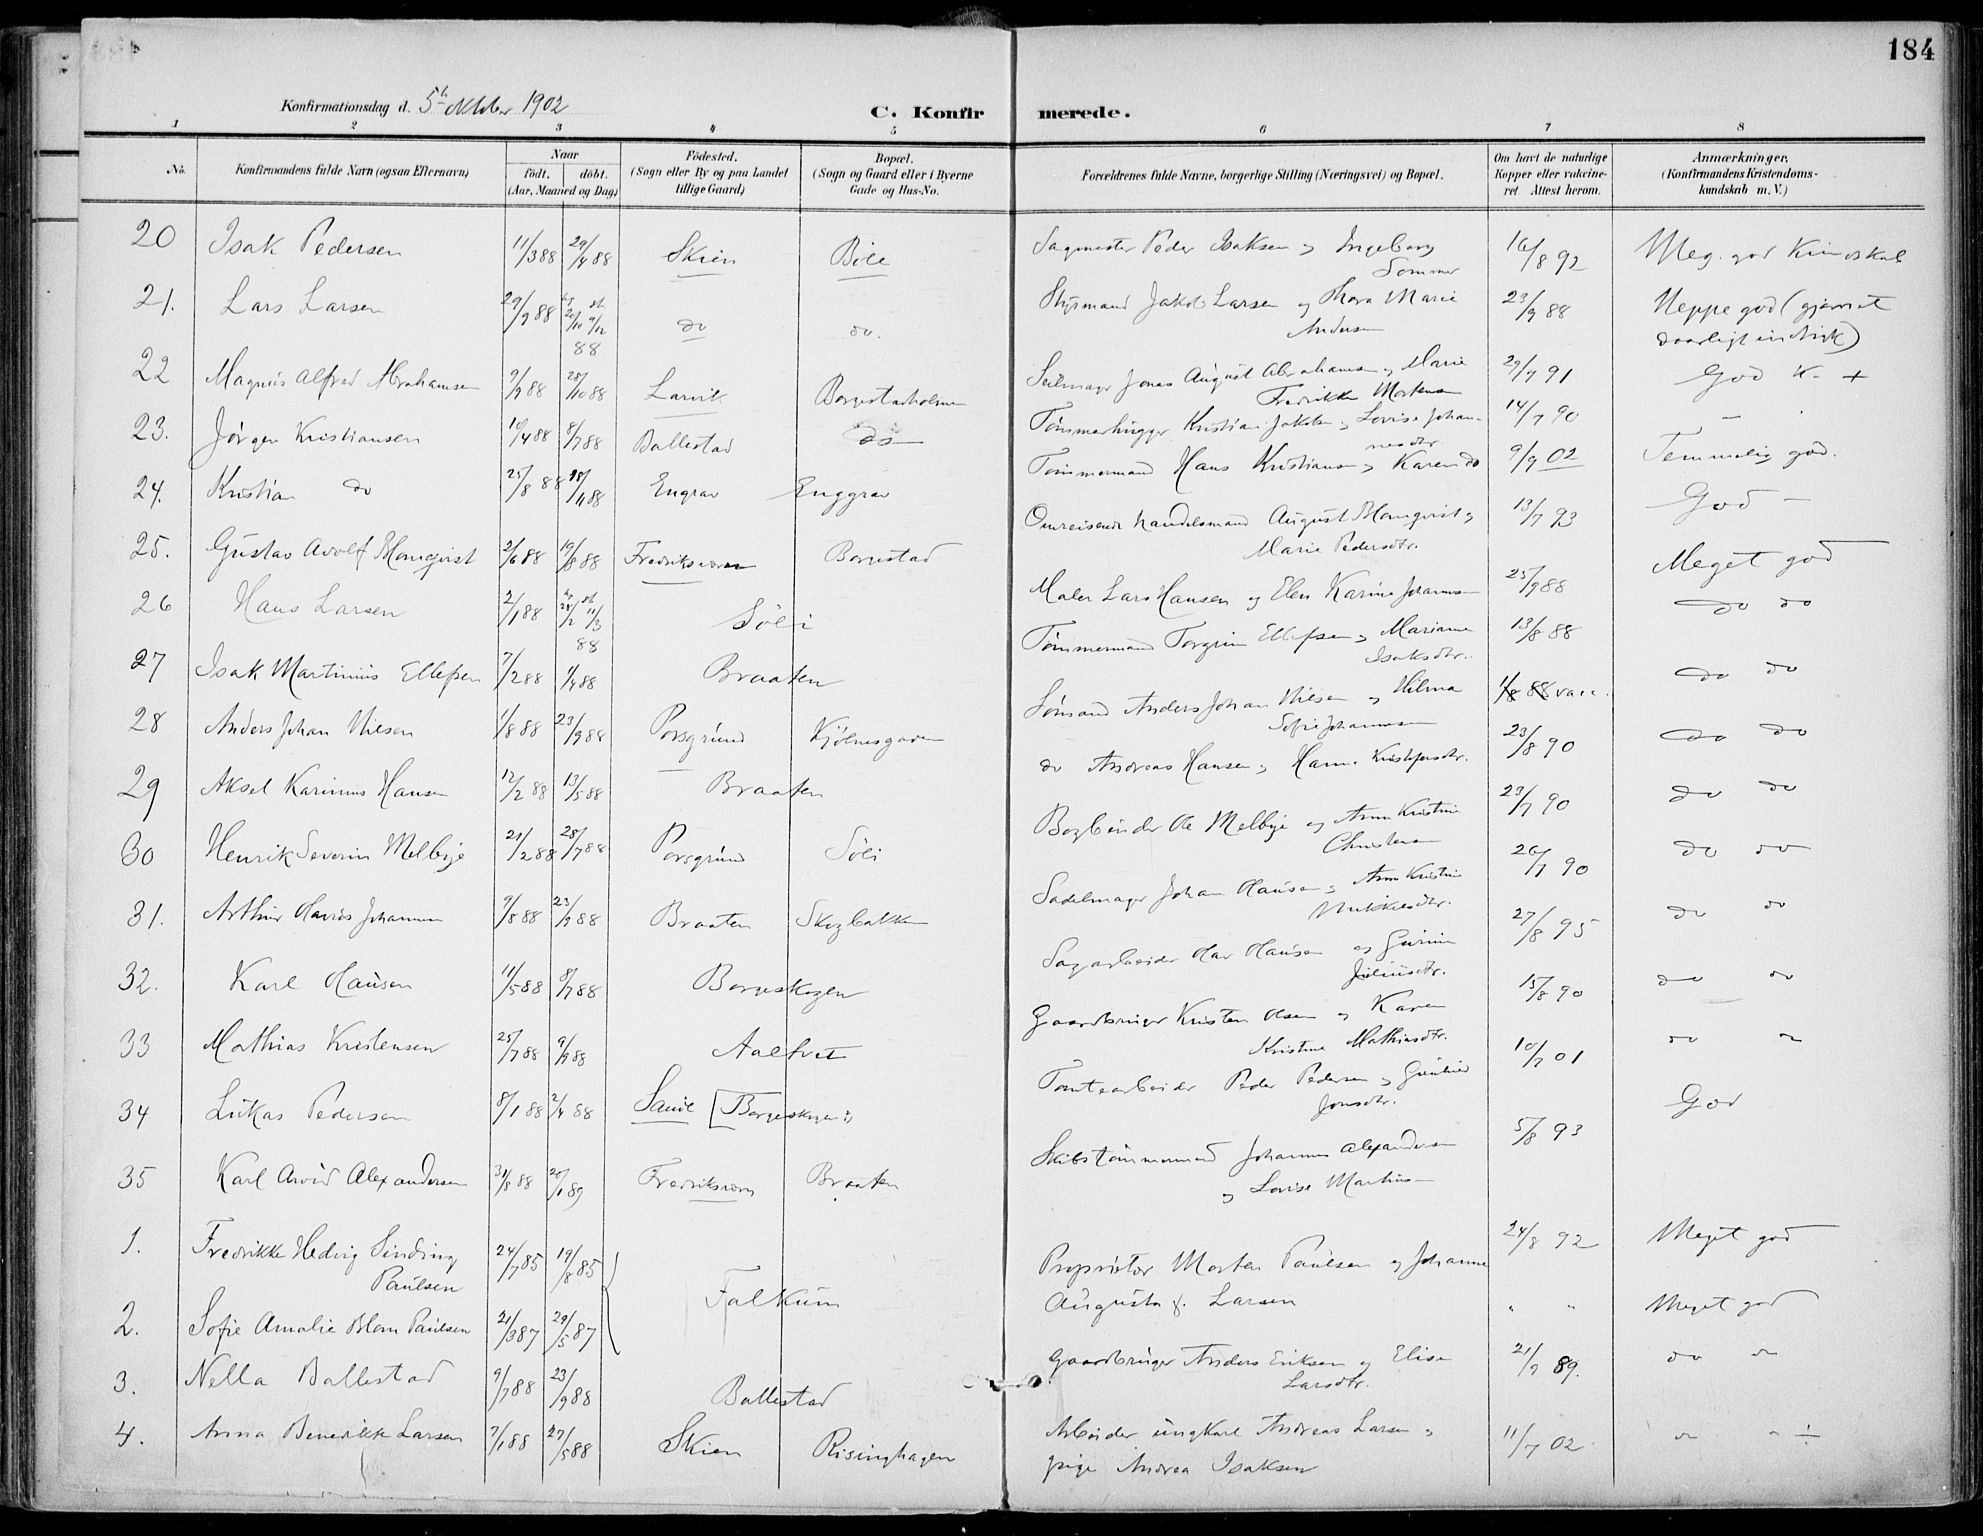 184
Konfirmationsdag d. 5te Oktober 1902
C. Konfirmerede.
1 2 3 4 5 6 7 8
No. Konfirmandens fulde Navn (ogsaa Efternavn) Naar født. døbt. (Aar, Maaned og Dag) Fødested. (Sogn eller By og paa Landet tillige Gaard) Bopæl. (Sogn og Gaard eller i Byerne Gade og Hus-No. Forældrenes fulde Navne, borgerlige Stilling (Næringsvei) og Bopæl. Om havt de naturlige Kopper eller vakcineret. Attest herom. Anmærkninger. (Konfirmandens Kristendomskundskab m. V.)
20 Isak Pedersen 11/3 88 29/4 88 Skien Böle Sagmester Peder Isaksen og Ingeborg Sommer 16/8 92 Meg. god Kundskab
21. Lars Larsen 29/9 88 20/10 9/12 88 do do. Styrmand Jakob Larsen og Thora Marie Andersen 23/9 88 Neppe god (gjernet daarligt
22 Magnus Alfred Abrahamsen 9/9 88 28/10 88 Larvik Borgestadholmen Seilmager Jonas August Abrahamsen og Marie Fredrikke Mortensen 29/7 91 God K. +
23. Jörgen Kristiansen 10/4 88 8/7 88 Ballestad do Tömmerhugger Kristian Jakobsen og Lovise Johannesdtr. 14/7 90 –
24. Kristian do 25/8 88 18/11 88 Engrav Enggrav Tömmermand Hans Kristiansen og Karen do 9/9 02 Temmelig god.
25. Gustav Adolf Blomqvist 2/6 88 19/8 88 Fredriksværn Borgestad Omreisende Handelsmand August Blomqvist og Marie Pedersdtr. 13/7 93 God –
26 Hans Larsen 2/1 88 28/2 11/3 88 Söli Maler Lars Hansen og Elen Karine Johannsen 25/9 88 Meget god
27 Isak Martinius Ellefsen 7/2 88 1/4 88 Braaten Tömmermand Torgrim Ellefsen og Mariane Isaksdtr. 13/8 88 do do
28 Anders Johan Nilsen 1/8 88 23/9 88 Porsgrund Kjölnesgaden Sömand Anders Johan Nilsen og Hilma Sofie Johannessen 1/8 88 vacc. do do
29 Aksel Karinius Hansen 12/2 88 13/5 88 Braaten do Andreas Hansen og Hanna Kristofersdtr. 23/8 90 do do
30 Henrik Severin Melbye 21/2 88 28/7 88 Porsgrund Söli Bogbinder Ole Melbye og Anne Kristine Christensen 23/7 90 do do
31. Arthur Havius Johannsen 9/8 88 23/9 88 Braaten Skogbakken Sadelmager Johan Hansen og Anne Kristine Mikkelsdtr. 26/7 90 do do
32. Karl Hansen 11/5 88 8/7 88 Borgeskogen Sagarbeider Hav Hansen og Gurine Juliusdtr. 27/8 95 do do
33 Mathias Kristensen 25/7 88 9/9 88 Aaltvet Gaardbruger Kristen Olsen og Karen Kristine Mathiasdtr. 15/8 90 do do
34 Lukas Pedersen 8/1 88 2/4 88 Sanne [Borgeskogen] Tomtearbeider Peder Pedersen og Gunhild Jonsdtr. 10/7 01 do do
35 Karl Arvid Alexandersen 31/8 88 20/1 89 Fredriksværn Braaten Skibstömmermand Johannes Alexandersen og Lovise Martinsen 5/8 93 God
1. Fredrikke Hedvig Sinding Paulsen 24/7 85 19/8 85 Falkum Proprietær Morten Paulsen og Johanne Augusta f. Larsen 24/8 92 Meget god
2. Sofie Amalie Blom Paulsen 21/3 87 29/5 87 " " Meget god
3. Nella Ballestad 9/7 88 23/9 88 Ballestad Gaardbruger Anders Eriksen og Elise Larsdtr. 21/9 89. do do
4. Anna Benedikte Larsen 7/1 88 27/5 88 Skien Risinghagen Arbeider ungkarl Andreas Larsen og pige Andrea Isaksen 11/7 02 do " ÷